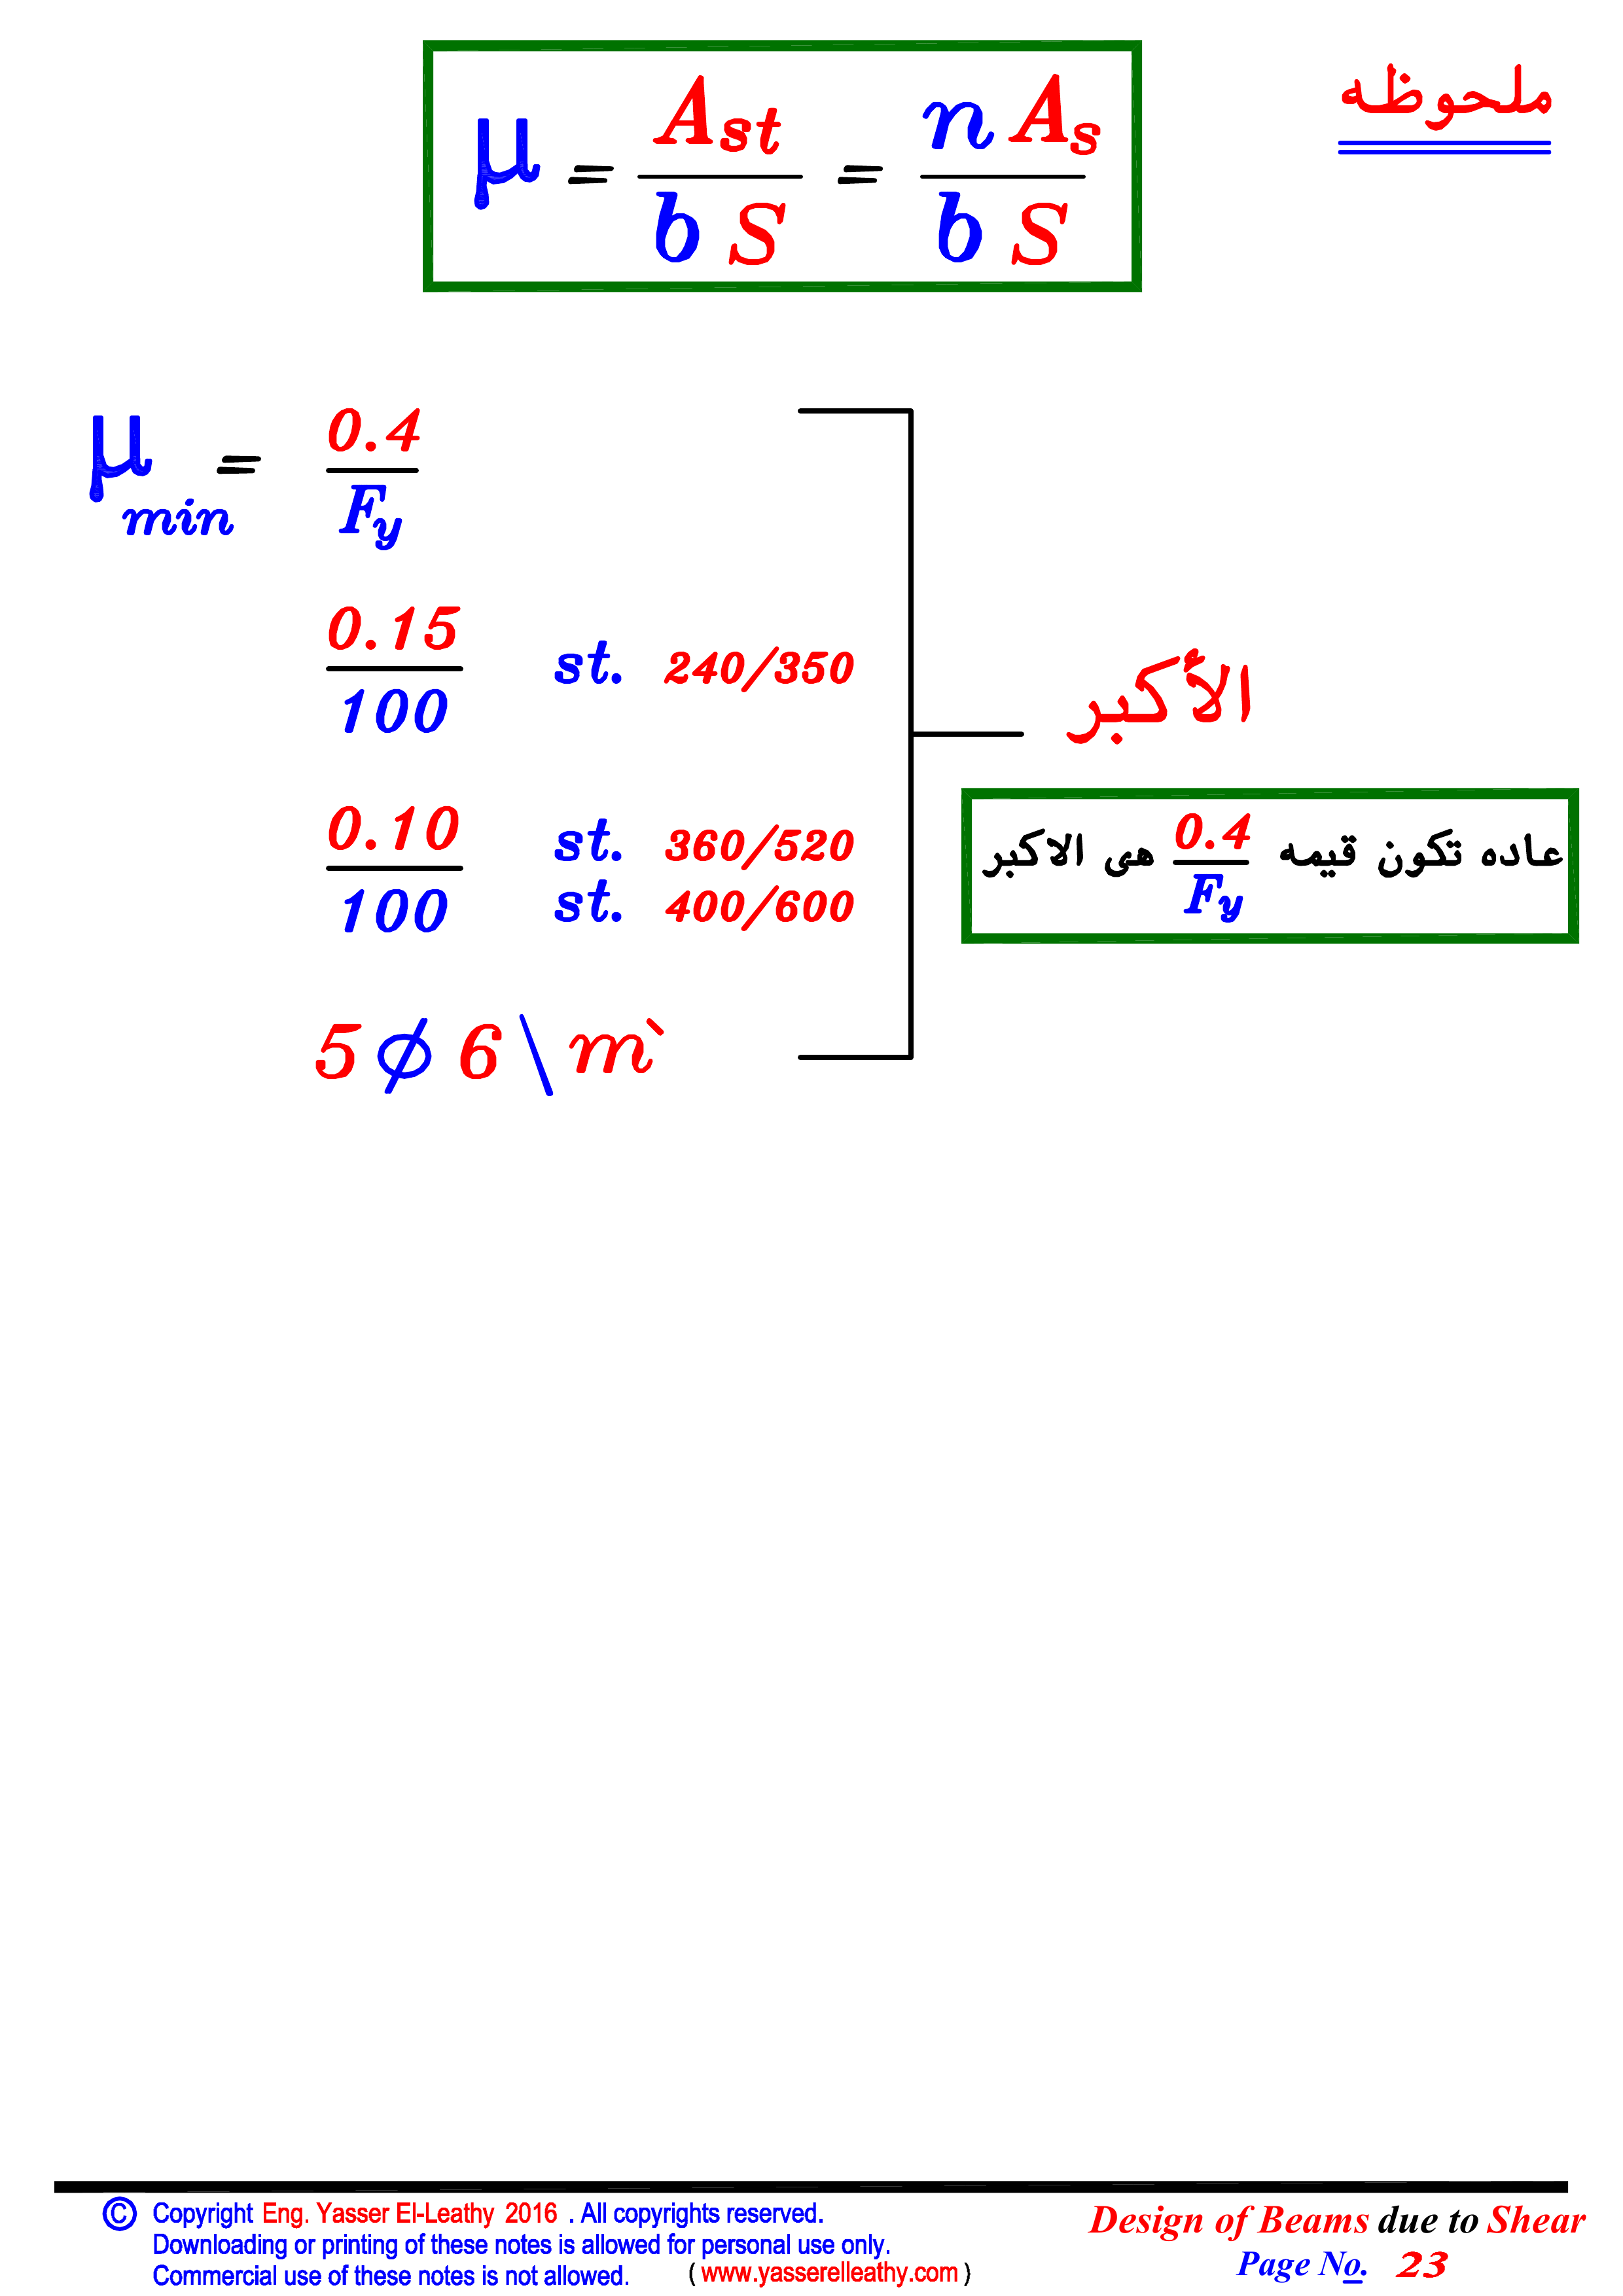 ملحوظه
μ = Ast / b S = n As / b S
μ min = 0.4 / Fy
0.15 / 100 st. 240/350
الأكبر
0.10 / 100 st. 360/520
st. 400/600
عاده تكون قيمه 0.4 / Fy هى الاكبر
5 ϕ 6 \ m`
© Copyright Eng. Yasser El-Leathy 2016 . All copyrights reserved.
Downloading or printing of these notes is allowed for personal use only.
Commercial use of these notes is not allowed. ( www.yasserelleathy.com )
Design of Beams due to Shear
Page No. 23